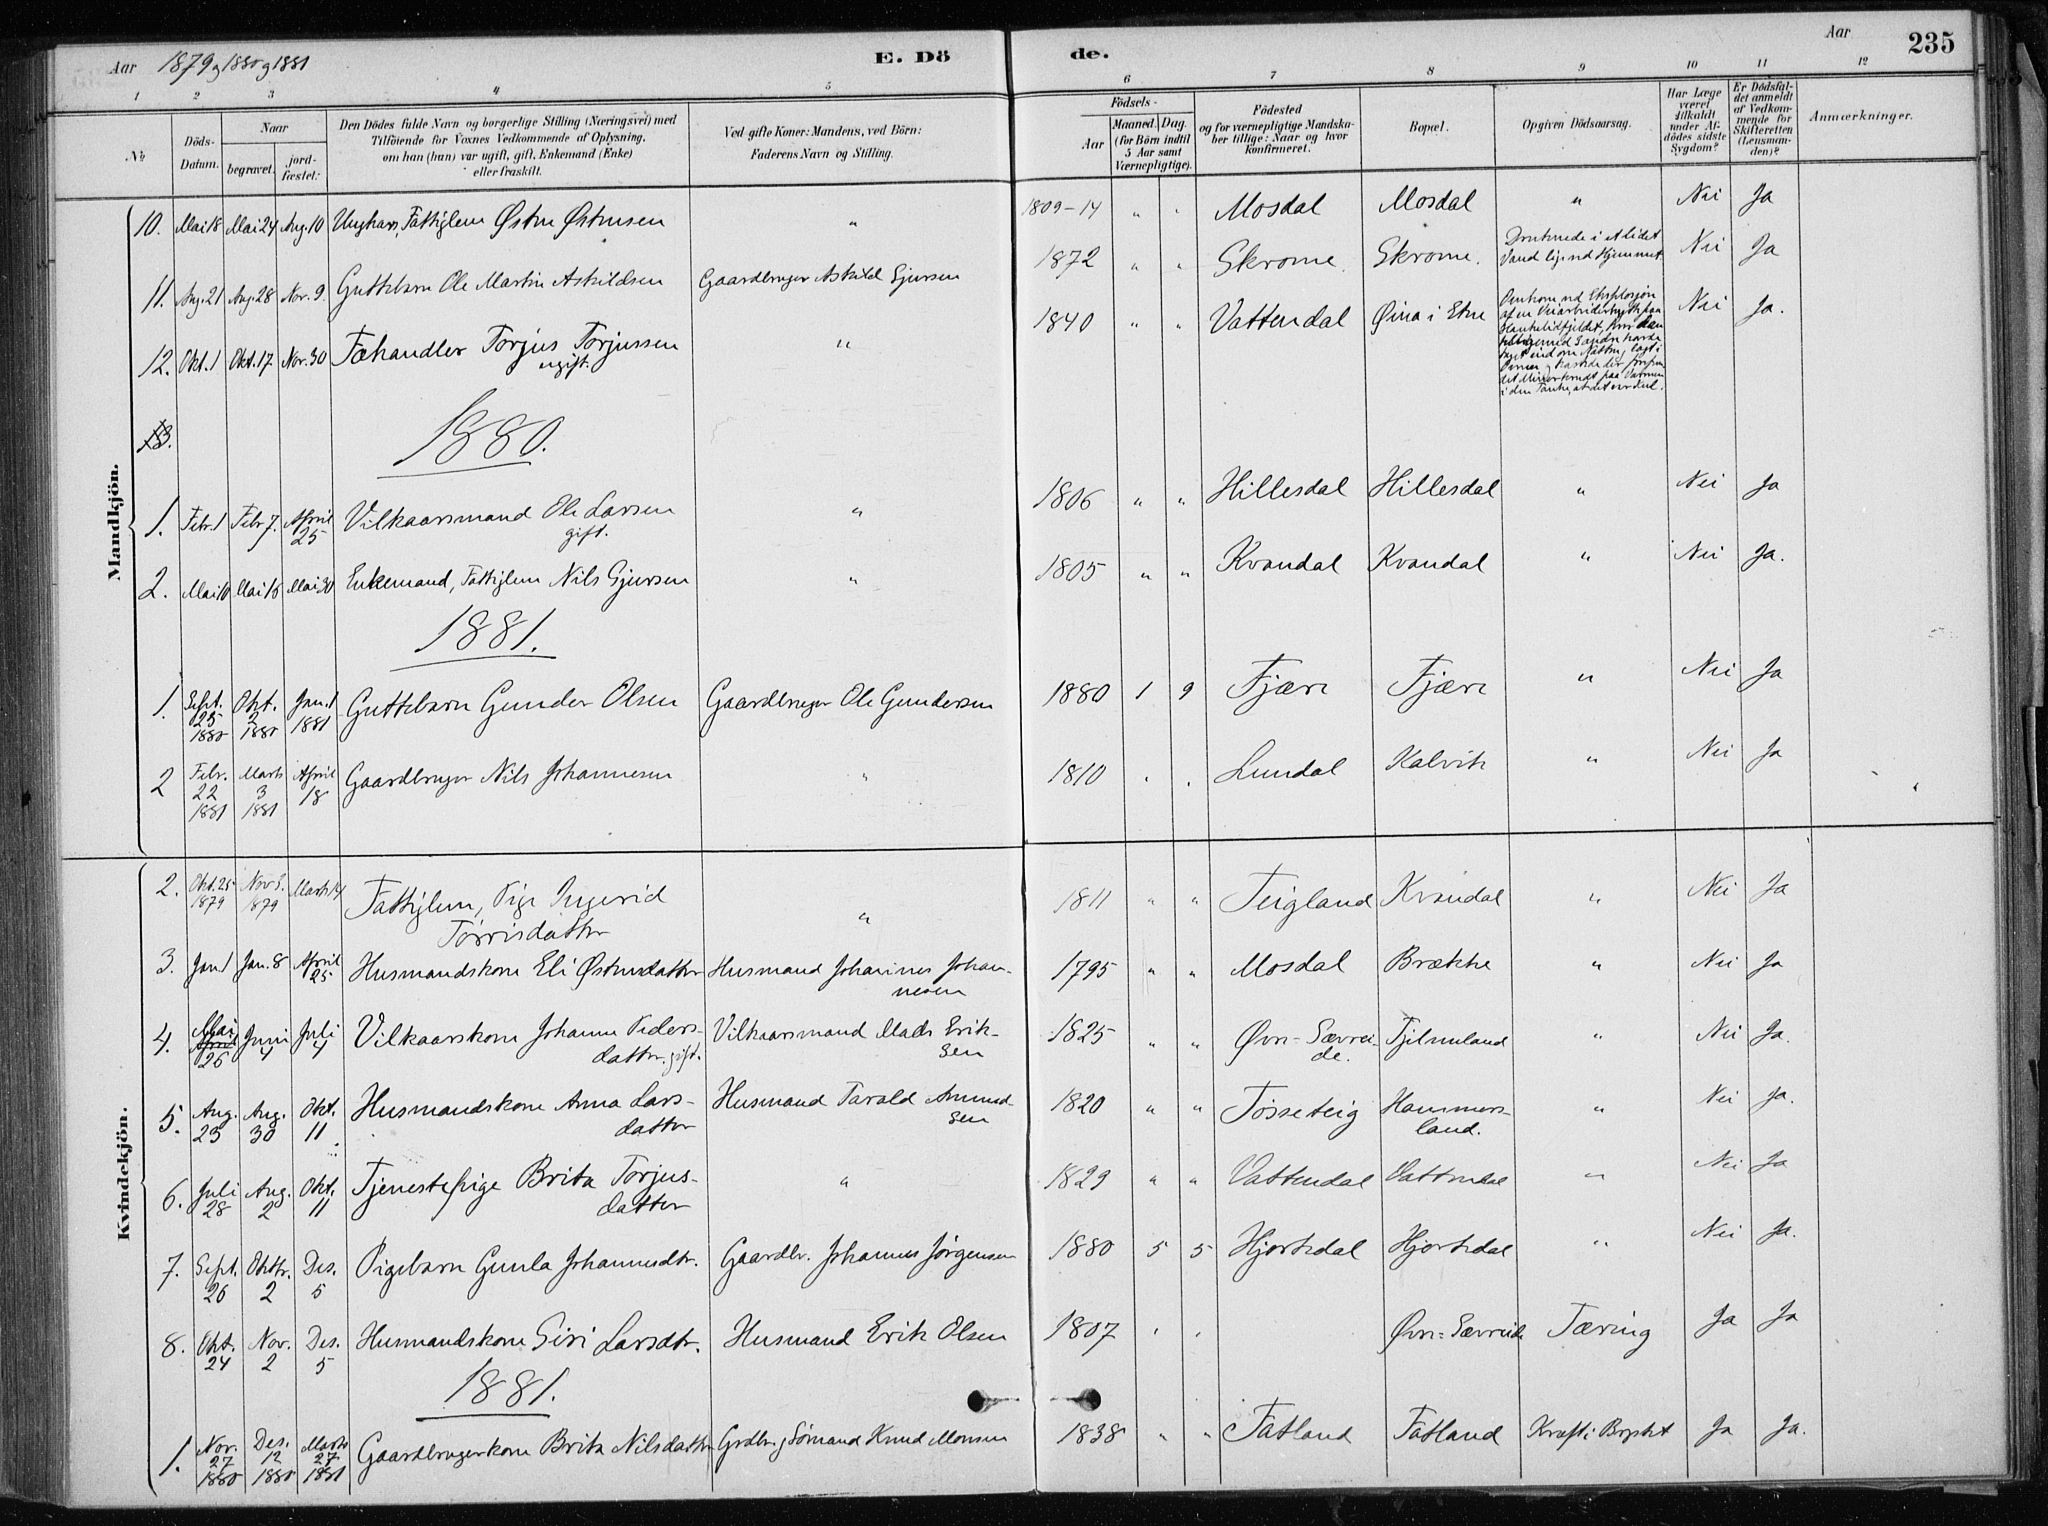 Aar 1879 og 1880 og 1881
E. Dö
de.
Aar
235
1 2 3 4 5 6 7 8 9 10 11 12
No
Döds-
Datum.
Naar
begravet.
jord-
fæstet:
Den Dödes fulde Navn og borgerlige Stilling (Næringsvei) med
Tilföiende for Voxnes Vedkommende af Oplysning,
om han (hun) var ugift, gift, Enkemand (Enke)
eller fraskilt.
Ved gifte Koner: Mandens, ved Börn:
Faderens Navn og Stilling.
Födsels-
Aar
Maaned. Dag.
(for Börn indtil
5 Aar samt
Værnepligtige).
Födested
og for værnepligtige Mandska-
ber tillige: Naar og hvor
konfirmeret.
Bopæl.
Opgiven Dödsaarsag.
Har Læge
været
tilkaldt
under Af-
dödes sidste
Sygdom?
Er Dödsfal-
det anmeldt
af Vedkom-
mende for
Skifteretten
(Lensman-
den)?
Anmærkninger.
Mandkjön.
10. Mai 18 Mai 24 Aug. 10 Ungkarl, Fattiglem Østen Østensen " 1809-14 " " Mosdal Mosdal " Nei Ja
11. Aug. 21 Aug. 28 Nov. 9. Guttebarn Ole Martin Askildsen Gaardbruger Askild Gjersen 1872 " " Skrome Skrome. Druknede i et lidet
Vand lige ved Hjemmet Nei Ja
12. Okt. 1 Okt. 17 Nov. 30 Fæhandler Torjus Torjussen
ugift. " 1840 " " Vattendal Øina i Etne Omkom ved Eksplosjon
af en Veiarbeiderhytte paa
i den Tanke, at det var Kul. Nei Ja.
13.
1880.
1. Febr. 1 Febr. 7. April
25 Vilkaarsmand Ole Larsen
gift. " 1806 " " Hillesdal Hillesdal " Nei Ja
2. Mai 10 Mai 16 Mai 30 Enkemand, Fattiglem Nils Gjersen " 1805 " " Kvandal Kvandal " Nei Ja.
1881.
1. Sept.
25
1880 Okt.
2
1880 Jan. 1
1881 Guttebarn Gunder Olsen Gaardbruger Ole Gundersen 1880 1 9 Fjære Fjære " Nei Ja
2 Febr.
22
1881 Marts
3
1881 April
18 Gaardbruger Nils Johannesen " 1810 " " Lundal Kalvik " Nei Ja
Kvindekjön.
2. Okt. 25
1879 Nov. 3.
1879 Marts 14 Fattiglem, Pige Ingerid
Torrisdatter " 1811 " " Teigland Kvandal " Nei Ja
3. Jan. 1 Jan. 8 April
25 Husmandskone Eli Østensdatter Husmand Johannes Johan-
nesen 1795 " " Mosdal Brække " Nei Ja
4. Mai
April
26 Juni
4 Juli
4 Vilkaarskone Johanne Peders-
datter. gift. Vilkaarsmand Mads Erik-
sen 1825 " " Øvre-Sævrei-
de. Fjelmeland " Nei Ja.
5. Aug.
23 Aug.
30 Okt.
11 Husmandskone Anna Lars-
datter Husmand Tarald Amund-
sen 1820 " " Tosseteig Hammers-
land. " Nei Ja.
6. Juli
28 Aug.
2 Okt.
11 Tjenestepige Brita Torjus-
datter " 1829 " " Vattendal Vattendal " Nei Ja
7. Sept.
26 Oktbr.
2 Des.
5 Pigebarn Gunla Johannesdtr. Gaardbr. Johannes Jørgensen 1880 5 5 Hjortedal Hjortedal " Nei Ja.
8. Okt.
24 Nov.
2 Des.
5 Husmandskone Siri Larsdtr. Husmand Erik Olsen 1807 " " Øvre-Sævreide Tæring Ja Ja
1881.
1. Nov.
27
1880 Des.
12
1880 Marts
27
1881 Gaardbrugerkone Brita Nilsdatter Grdbr. og Sømand Knud Monsen 1838 " " Fatland Fatland Kræft i Brystet Ja Ja.